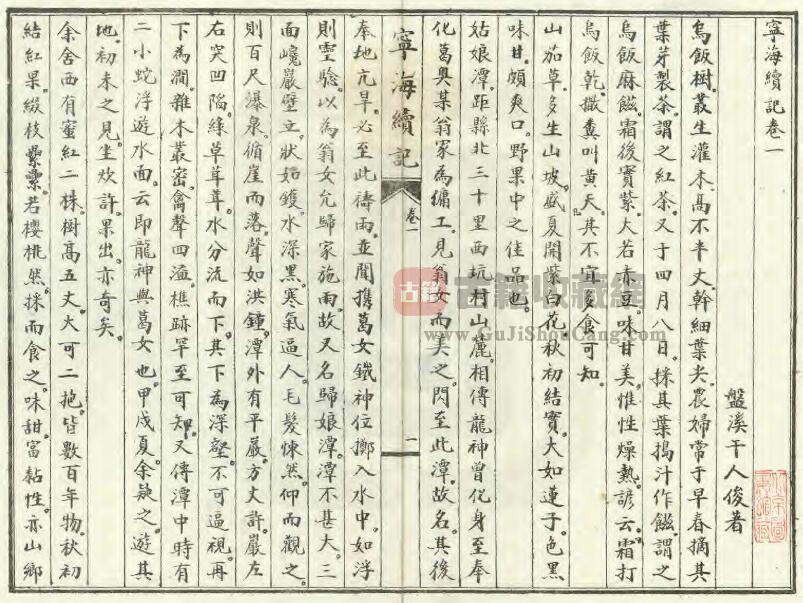 寧海續記卷一
盤溪干人俊著
烏飯樹。叢生灌木。高不半丈。幹細葉尖。農婦常于早春摘其
葉芽製茶。謂之紅茶。又于四月八日。採其葉搗汁作餈。謂之
烏飯麻餈。霜後實紫。大若赤豆。味甘美。惟性燥熱。諺云。霜打
烏飯乾。撒糞叫黃天。其不宜多食可知。
山茄草。多生山坡。盛夏開紫白花。秋初結實。大如蓮子。色黑
味甘。頗爽口。野果中之佳品也。
姑娘潭。距縣北三十里西坑村山麓。相傳龍神曾化身至奉
化葛奧某翁家為傭工。見翁女而美之。閃至此潭。故名。其後
寧海續記
卷一
一
奉地亢旱。必至此禱雨。並聞携葛女鐵神位擲入水中。如浮
則靈驗。以為翁女允歸家施雨。故又名歸娘潭。潭不甚大。三
面巉巖壁立。狀如鑊。水深黑。寒氣逼人。毛髮悚然。仰而觀之。
則百尺瀑泉。循崖而落。聲如洪鐘。潭外有平巖。方丈許。巖左
右突凹陷。綠草茸茸。水分流而下。其下為深壑。不可逼視。再
下為澗。雜木叢密。禽聲四溢。樵跡罕至可知。又傳潭中時有
二小蛇浮遊水面。云即龍神與葛女也。甲戌夏。余
之。遊其
地。初未之見。坐炊許果出。亦奇矣。
余舍西有蜜紅二株。樹高五丈。大可二抱。皆數百年物。秋初
結紅果。綴枝纍纍。若櫻桃然。採而食之。味甜。富黏性。亦山鄉
古籍
古籍收藏網
www.GuJiShouCang.com